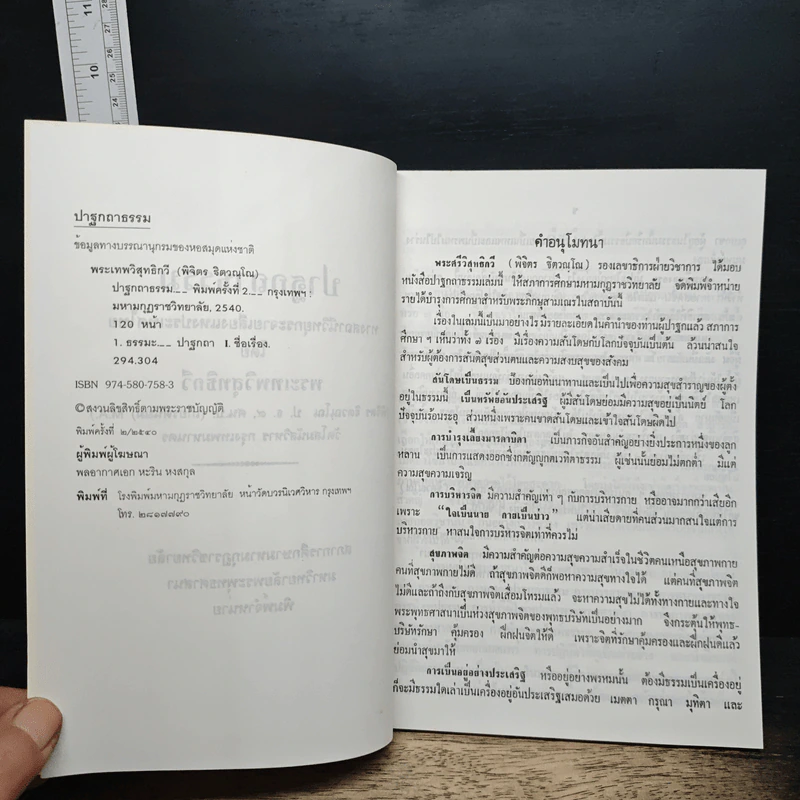 ปาฐกถาธรรม
ข้อมูลทางบรรณานุกรมของหอสมุดแห่งชาติ
พระเทพวิสุทธิกวี (พิจิตร ฐิตวณฺโณ)
ปาฐกถาธรรม.__ พิมพ์ครั้งที่ 2.__ กรุงเทพฯ :
มหามกุฏราชวิทยาลัย, 2540.
120 หน้า
1. ธรรมะ.__ ปาฐกถา I. ชื่อเรื่อง.
294.304
ISBN 974-580-758-3
© สงวนลิขสิทธิ์ตามพระราชบัญญัติ
พิมพ์ครั้งที่ ๒/๒๕๔๐
ผู้พิมพ์ผู้โฆษณา
พลอากาศเอก หะริน หงสกุล
พิมพ์ที่ โรงพิมพ์มหามกุฏราชวิทยาลัย หน้าวัดบวรนิเวศวิหาร กรุงเทพฯ
โทร. ๒๘๑๗๗๙๐
คำอนุโมทนา
พระศรีวิสุทธิกวี (พิจิตร ฐิตวณฺโณ) รองเลขาธิการฝ่ายวิชาการ ได้มอบ
หนังสือปาฐกถาธรรมเล่มนี้ ให้สภาการศึกษามหามกุฏราชวิทยาลัย จัดพิมพ์จำหน่าย
รายได้บำรุงการศึกษาสำหรับพระภิกษุสามเณรในสถาบันนี้
เรื่องในเล่มนี้เป็นมาอย่างไร มีรายละเอียดในคำนำของท่านผู้ปาฐกแล้ว สภาการ
ศึกษา ฯ เห็นว่าทั้ง ๗ เรื่อง มีเรื่องความสันโดษกับโลกปัจจุบันเป็นต้น ล้วนน่าสนใจ
สำหรับผู้ต้องการสันติสุขส่วนตนและความสงบสุขของสังคม
สันโดษเป็นธรรม ป้องกันอทินนาทานและเป็นไปเพื่อความสุขสำราญของผู้ตั้ง
อยู่ในธรรมนี้ เป็นทรัพย์อันประเสริฐ ผู้มีสันโดษย่อมมีความสุขอยู่เป็นนิตย์ โลก
ปัจจุบันร้อนระอุ ส่วนหนึ่งเพราะคนขาดสันโดษและเข้าใจสันโดษผิดไป
การบำรุงเลี้ยงมารดาบิดา เป็นภารกิจอันสำคัญอย่างยิ่งประการหนึ่งของลูก
หลาน เป็นการแสดงออกซึ่งกตัญญูกตเวทิตาธรรม ผู้เช่นนั้นย่อมไม่ตกต่ำ มีแต่
ความสุขความเจริญ
การบริหารจิต มีความสำคัญเท่า ๆ กับการบริหารกาย หรืออาจมากกว่าเสียอีก
เพราะ "ใจเป็นนาย กายเป็นบ่าว" แต่น่าเสียดายที่คนส่วนมากสนใจแต่การ
บริหารกาย หาสนใจการบริหารจิตเท่าที่ควรไม่
สุขภาพจิต มีความสำคัญต่อความสุขความสำเร็จในชีวิตคนเหนือสุขภาพกาย
คนที่สุขภาพกายไม่ดี ถ้าสุขภาพจิตดีก็พอหาความสุขทางใจได้ แต่คนที่สุขภาพจิต
ไม่ดีและถ้าถึงกับสุขภาพจิตเสื่อมโทรมแล้ว จะหาความสุขไม่ได้ทั้งทางกายและทางใจ
พระพุทธศาสนาเป็นห่วงสุขภาพจิตของพุทธบริษัทเป็นอย่างมาก จึงกระตุ้นให้พุทธ-
บริษัทรักษา คุ้มครอง ฝึกฝนจิตให้ดี เพราะจิตที่รักษาคุ้มครองและฝึกฝนดีแล้ว
ย่อมนำสุขมาให้
การเป็นอยู่อย่างประเสริฐ หรืออยู่อย่างพรหมนั้น ต้องมีธรรมเป็นเครื่องอยู่
ก็จะมีธรรมใดเล่าเป็นเครื่องอยู่อันประเสริฐเสมอด้วย เมตตา กรุณา มุทิตา และ